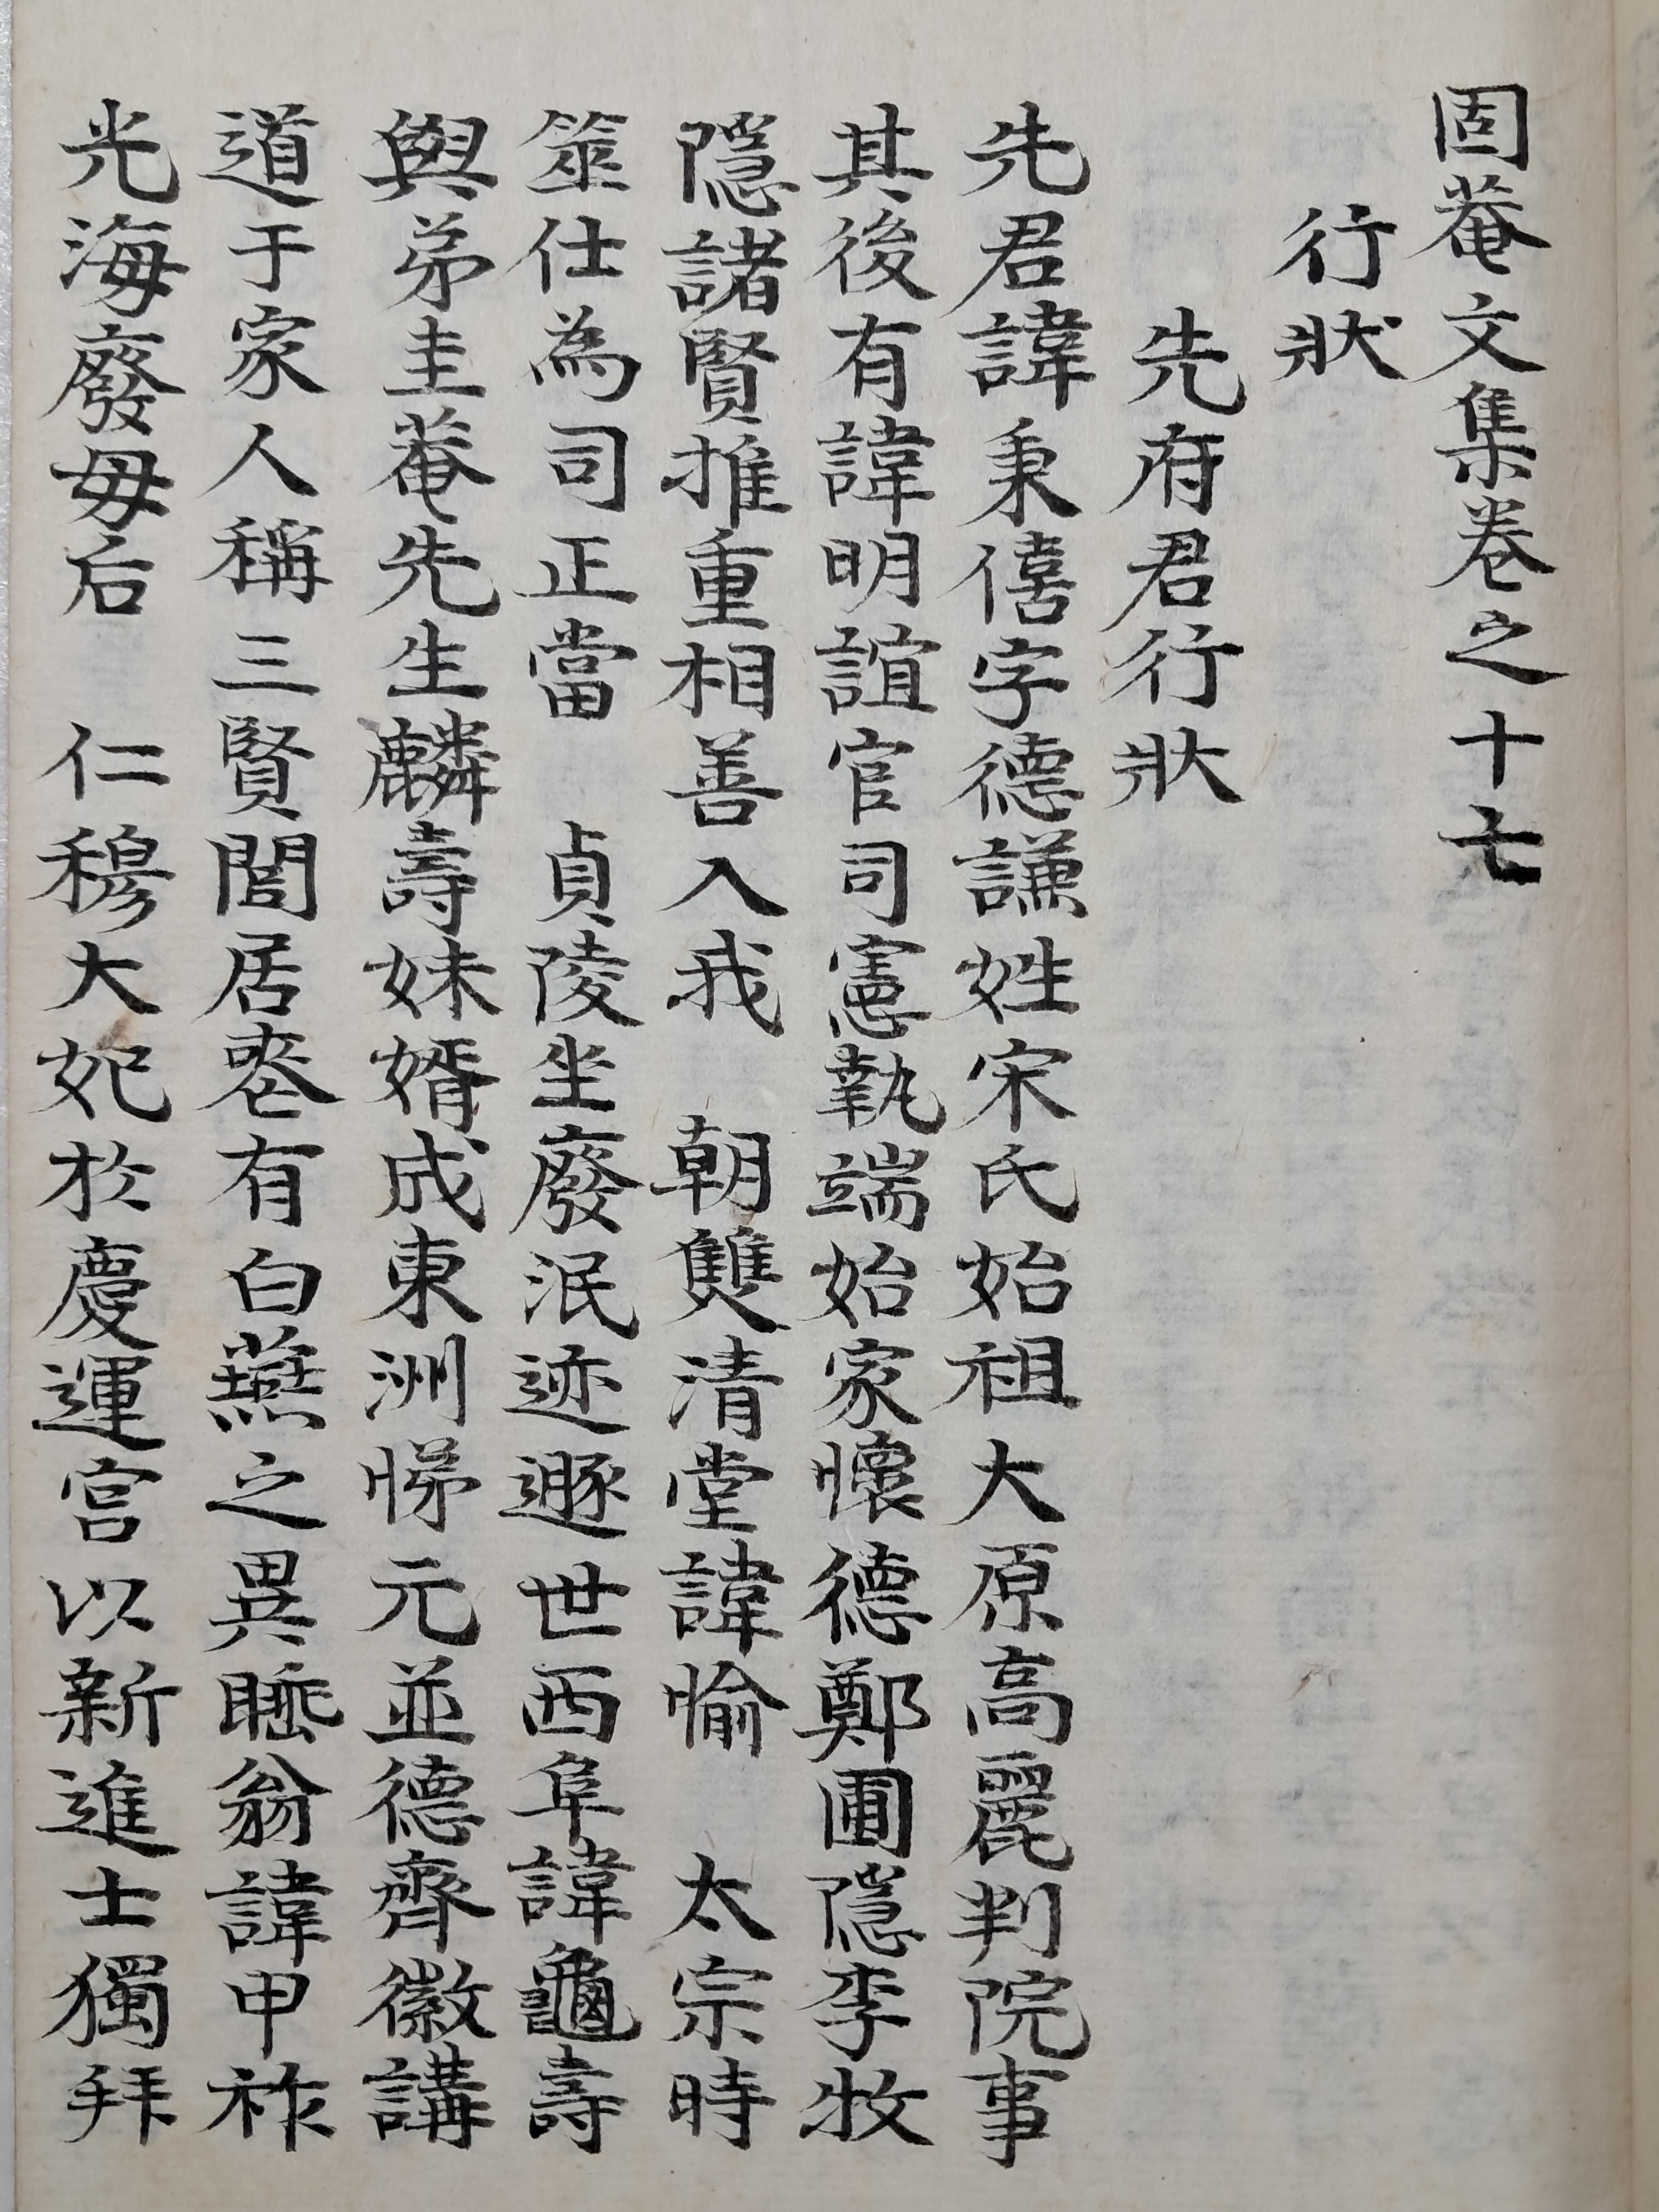 固菴文集卷之十七
行狀
先府君行狀
先君諱秉僖字德謙姓宋氏始祖大原高麗判院事
其後有諱明誼官司憲執端始家懷德鄭圃隱李牧
隱諸賢推重相善入我　朝雙清堂諱愉　太宗時
筮仕為司正當　貞陵坐廢泯迹遯世西阜諱龜壽
與弟圭菴先生麟壽妹婿成東洲悌元並德齊徽講
道于家人稱三賢閭居喪有白燕之異睡翁諱甲祚
光海廢母后　仁穆大妃於慶運宮以新進士獨拜